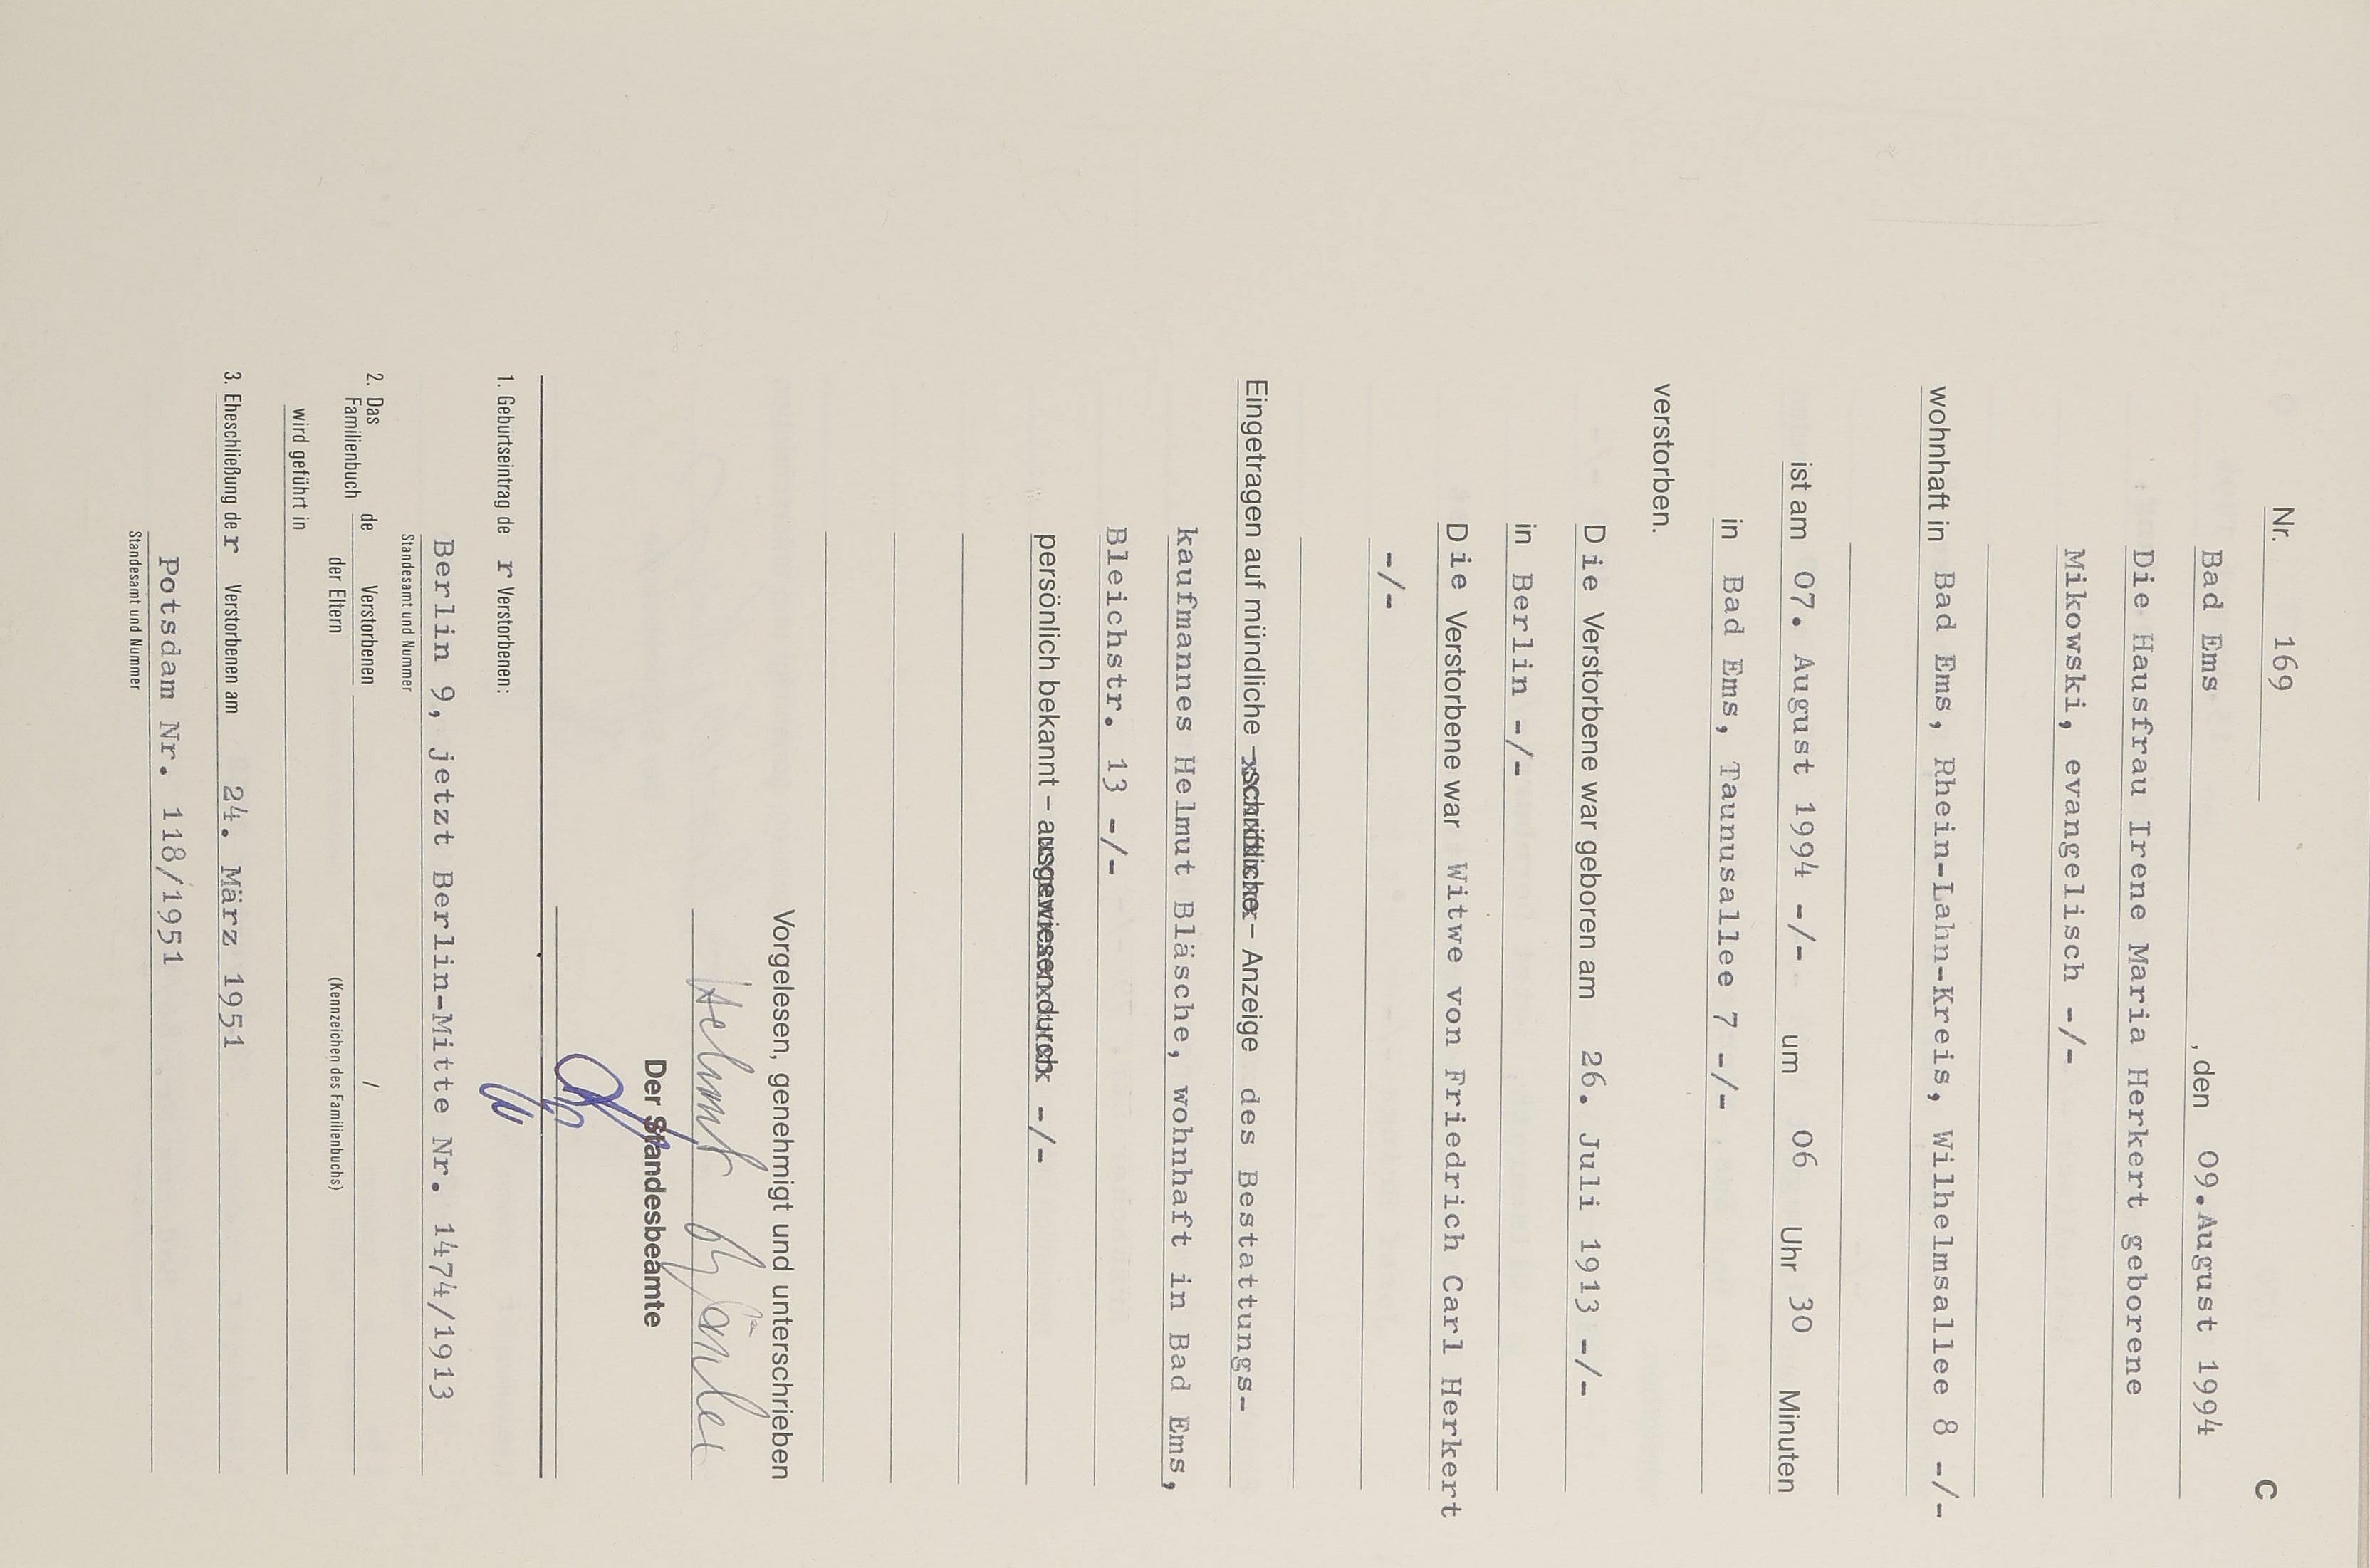 C
Nr. 169
Bad Ems , den 09.August 1994
Die Hausfrau Irene Maria Herkert geborene
Mikowski, evangelisch -/-
wohnhaft in Bad Ems, Rhein-Lahn-Kreis, Wilhelmsallee 8 -/-
ist am 07. August 1994 -/- um 06 Uhr 30 Minuten
in Bad Ems, Taunusallee 7 -/-
verstorben.
Die Verstorbene war geboren am 26. Juli 1913 -/-
in Berlin -/-
Die Verstorbene war Witwe von Friedrich Carl Herkert
-/-
Eingetragen auf mündliche – schriftliche – Anzeige des Bestattungs-
kaufmannes Helmut Bläsche, wohnhaft in Bad Ems,
Bleichstr. 13 -/-
persönlich bekannt – ausgewiesen durch -/-
Vorgelesen, genehmigt und unterschrieben
Helmut
Der Standesbeamte
1. Geburtseintrag de r Verstorbenen:
Berlin 9, jetzt Berlin-Mitte Nr. 1474/1913
Standesamt und Nummer
2. Das Familienbuch de Verstorbenen /
der Eltern (Kennzeichen des Familienbuchs)
wird geführt in
3. Eheschließung de r Verstorbenen am 24. März 1951
Potsdam Nr. 118/1951
Standesamt und Nummer